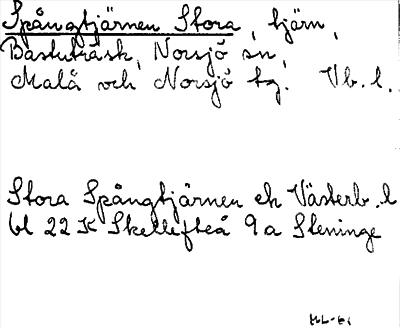 Spångtjärnen Stora, tjärn,
Bastuträsk, Norsjö sn,
Malå och Norsjö tg. Vb. l.
Stora Spångtjärnen ek Västerb. l
bl 22 K Skellefteå 9a Steninge